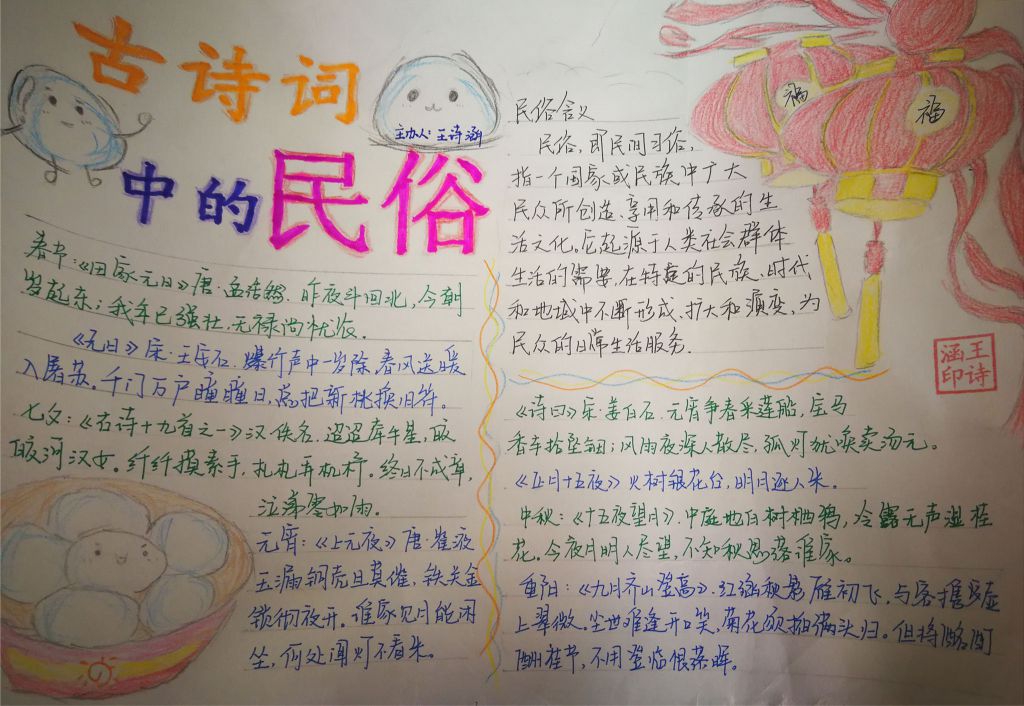 古诗词
中的民俗
主办人:王诗涵
春节:《田家元日》唐·孟浩然.昨夜斗回北,今朝
岁起东;我年已强壮,无禄尚忧农.
《元日》宋·王安石.爆竹声中一岁除,春风送暖
入屠苏。千门万户曈曈日,总把新桃换旧符。
七夕:《古诗十九首之一》汉佚名.迢迢牵牛星,皎
皎河汉女。纤纤擢素手,札札弄机杼。终日不成章,
泣涕零如雨。
元宵:《上元夜》唐·崔液
玉漏铜壶且莫催,铁关金
锁彻夜开。谁家见月能闲
坐,何处闻灯不看来。
民俗含义
民俗,即民间习俗,
指一个国家或民族中广大
民众所创造、享用和传承的生
活文化。它起源于人类社会群体
生活的需要,在特定的民族、时代
和地域中不断形成、扩大和演变,为
民众的日常生活服务.
福
福
王诗
涵印
《诗曰》宋·姜白石.元宵争看采莲船,宝马
香车拾坠钿;风雨夜深人散尽,孤灯犹唤卖汤元。
《正月十五夜》火树银花合,明月逐人来.
中秋:《十五夜望月》.中庭地白树栖鸦,冷露无声湿桂
花。今夜月明人尽望,不知秋思落谁家。
重阳:《九月齐山登高》.江涵秋影雁初飞,与客携壶
上翠微。尘世难逢开口笑,菊花须插满头归。但将酩酊
酬佳节,不用登临恨落晖。